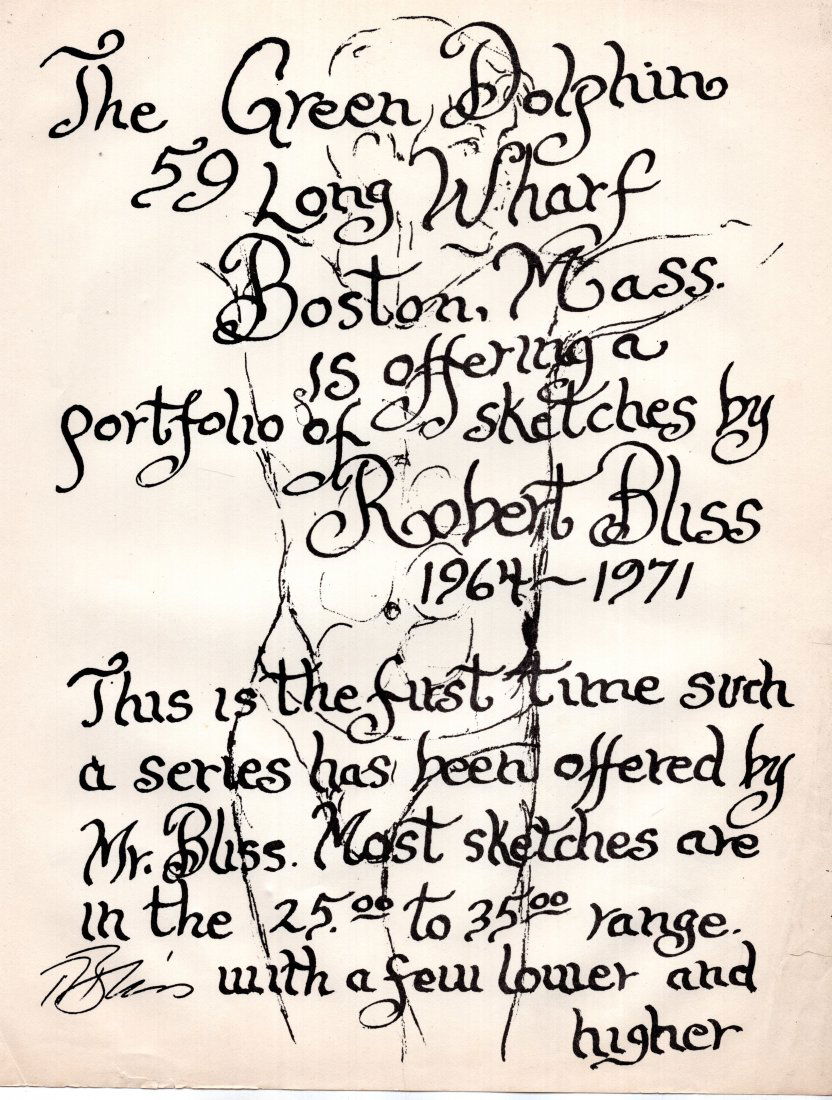 The Green Dolphin
59 Long Wharf
Boston, Mass.
is offering a
portfolio of sketches by
Robert Bliss
1964~1971
This is the first time such
a series has been offered by
Mr. Bliss. Most sketches are
in the 25.00 to 35.00 range.
RBliss with a few lower and
higher